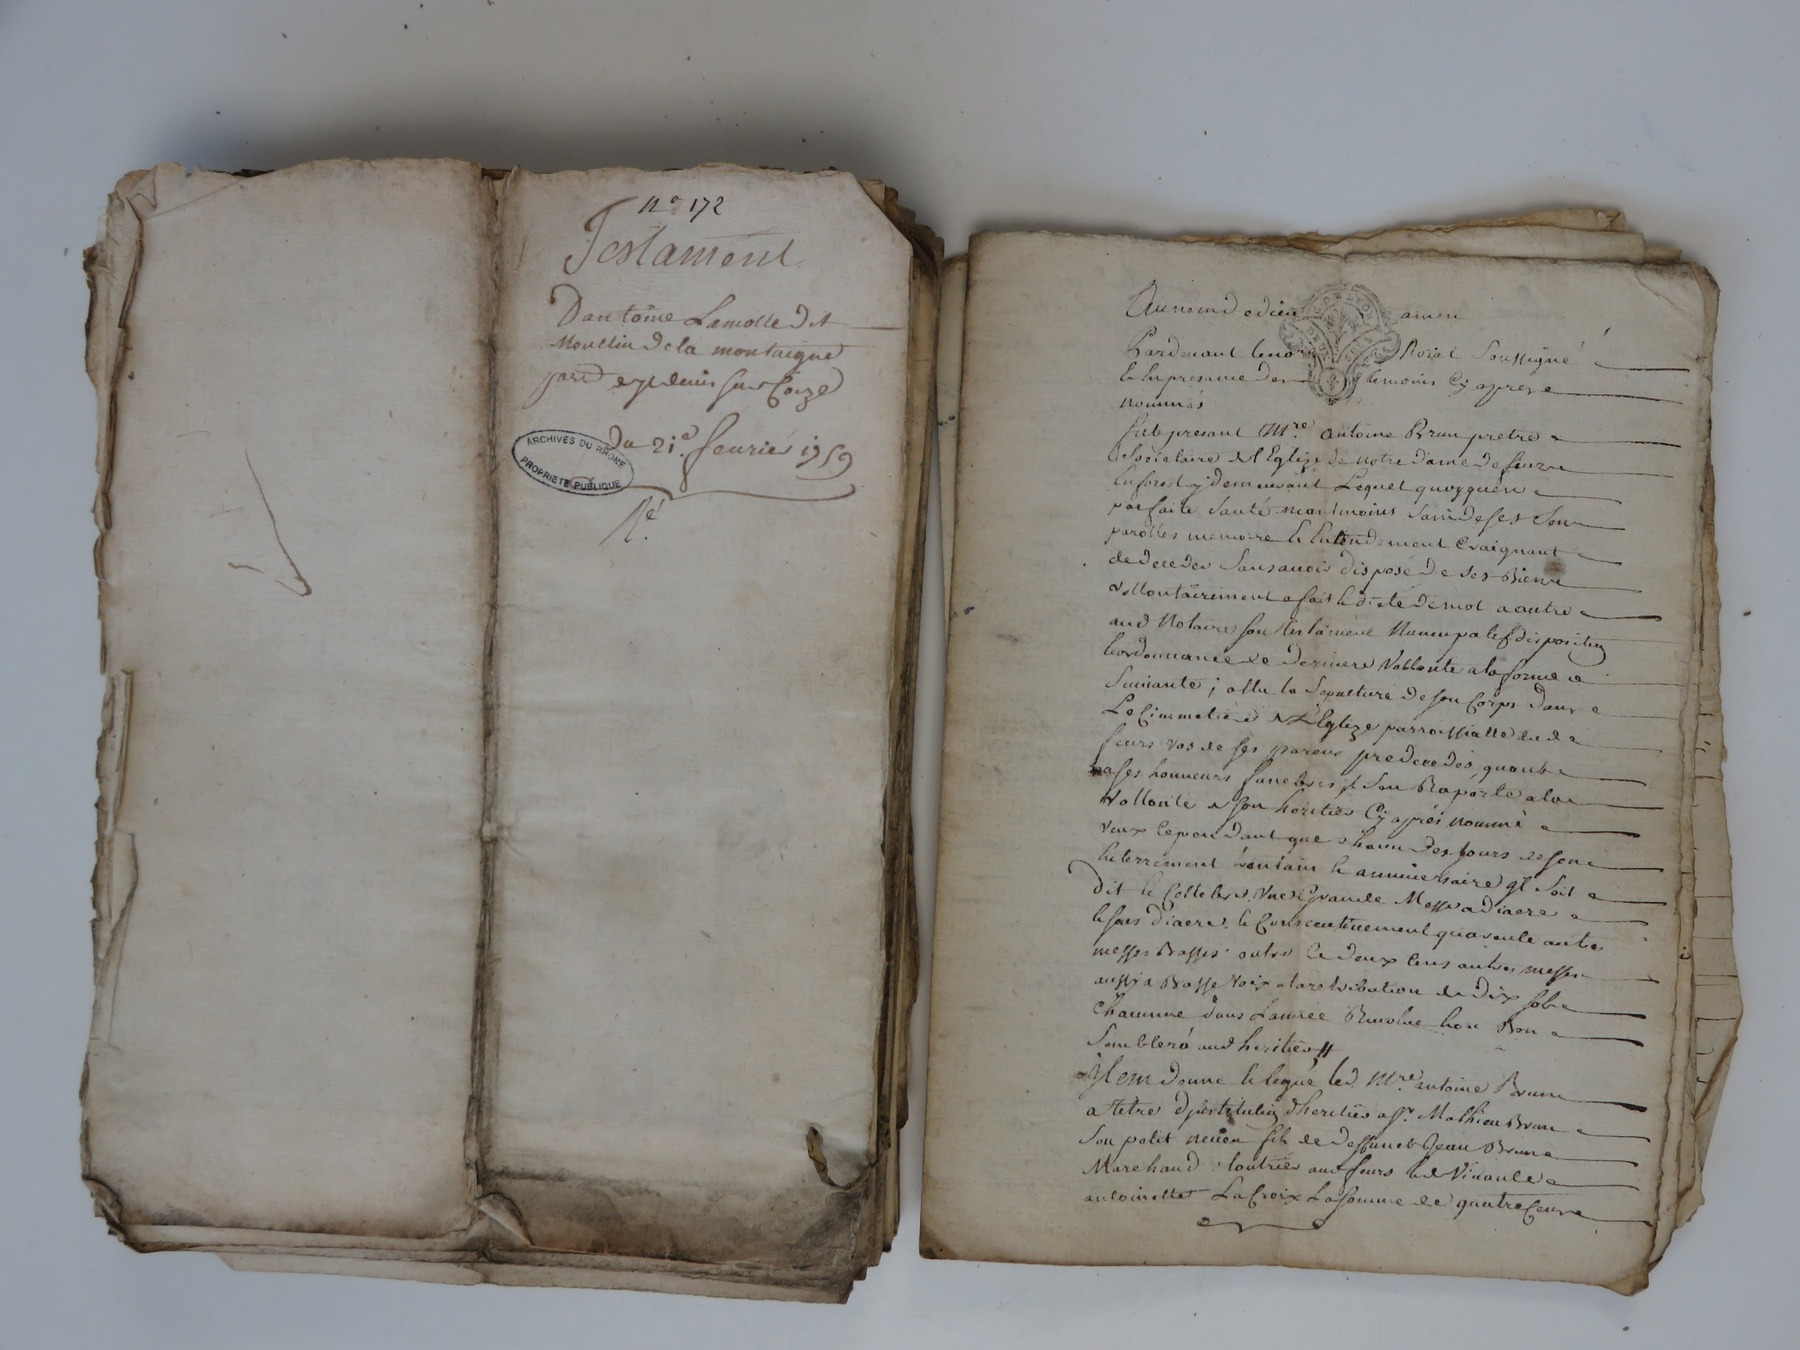 n° 172
Testament
Dantoine Lamotte dit
Moullin de la montaigne
parr de st denis sur Coize
du 21e. feurier 1759
ARCHIVES DU RHÔNE
PROPRIETE PUBLIQUE
Au nom de dieu amen
Pardeuant le no.re Royal Soussigné
et en presance des temoins Cy apres
nommés
fut present M.re antoine Brun pretre
Societaire de l'Eglize de notre dame de feurs
en forest y demeurant Lequel quoyqu'en
parfaite santé neantmoins sain de ses sens
parolles memoire et Entendement Craignant
de deceder sans auoir disposé de ses Biens
vollontairement a fait et dicté de mot a autre
aud Notaire son testament Nuncupatif disposition
et ordonnance de derniere Vollonté a la forme
suiuante; a Elu la Sepulture de son Corps dans
Le Cimmetiere de L'Eglize parroissialle dud
feurs vas de ses parens predecedés, quant
a ses honneurs funebres il s'en Raporte a la
Vollonté de son heritier Cy aprés nommé
veux Cependant que chacun des jours de son
Enterrement et anniuersaire qil soit
dit et Cellebré Une Grande Messe a diacre
et sous diacre et Consecutiuement quarente autres
messes Basses outre Ce deux Cens autres messes
aussy a Basse Voix a la retribution de dix sols
Chacune dans L'année Reuolue Bon
Semblera aud heritier //
Item donne et legue led. M.re antoine Brun
a titre d'jnstitution d'heritier a Sr. Mathieu Brun
Son petit neueu fils de deffunct Jean Brun
Marchand aud feurs et de
antoinette La Croix La somme de quatre Cens